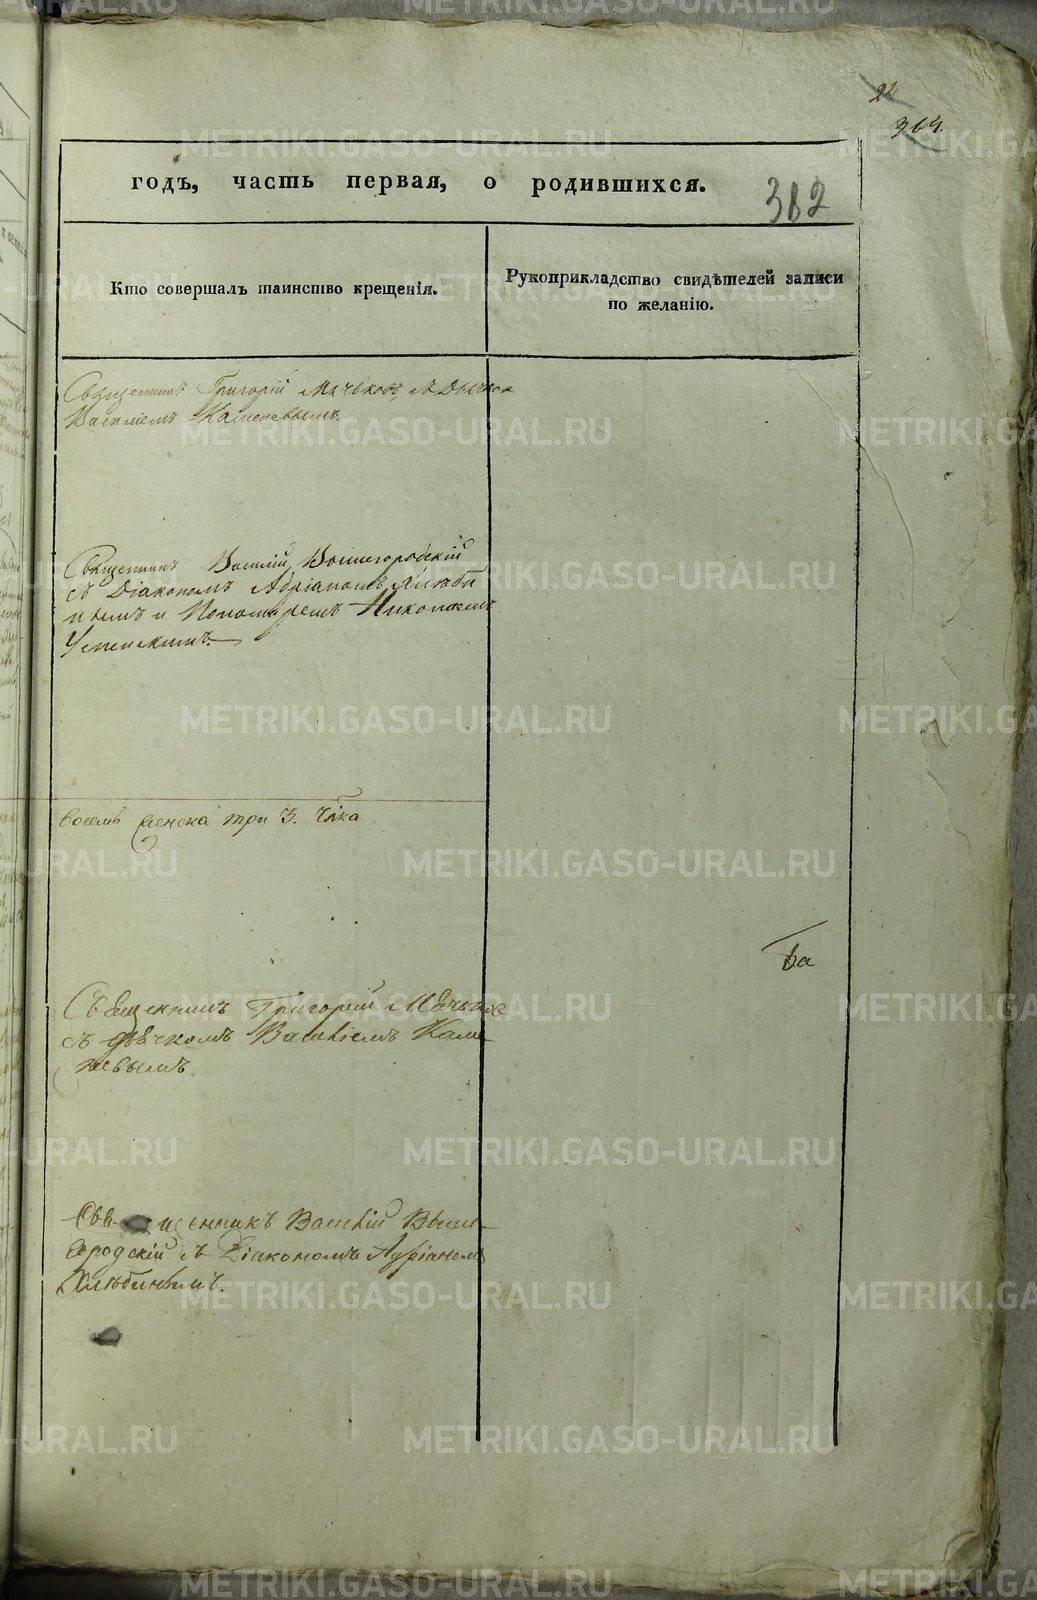 24
годъ, часть первая, о родившихся.
382
Кто совершалъ таинство крещенія.
Рукоприкладство свидѣтелей записи
по желанію.
Священникъ Григорій Мячьковъ
Василіемъ Каменевымъ.
Священникъ Василій Вышегородскій
съ Діакономъ Адріаномъ Хлюби
нымъ и Пономаремъ Николаемъ
Успенскимъ.
восемь женска три 3. чл҃ка
Священникъ Григорій
съ дьячкомъ Василіемъ Каме
невымъ
Священникъ Василій Выше
городскій съ Діакономъ Адріаномъ
Хлюбинымъ.
METRIKI.GASO-URAL.RU